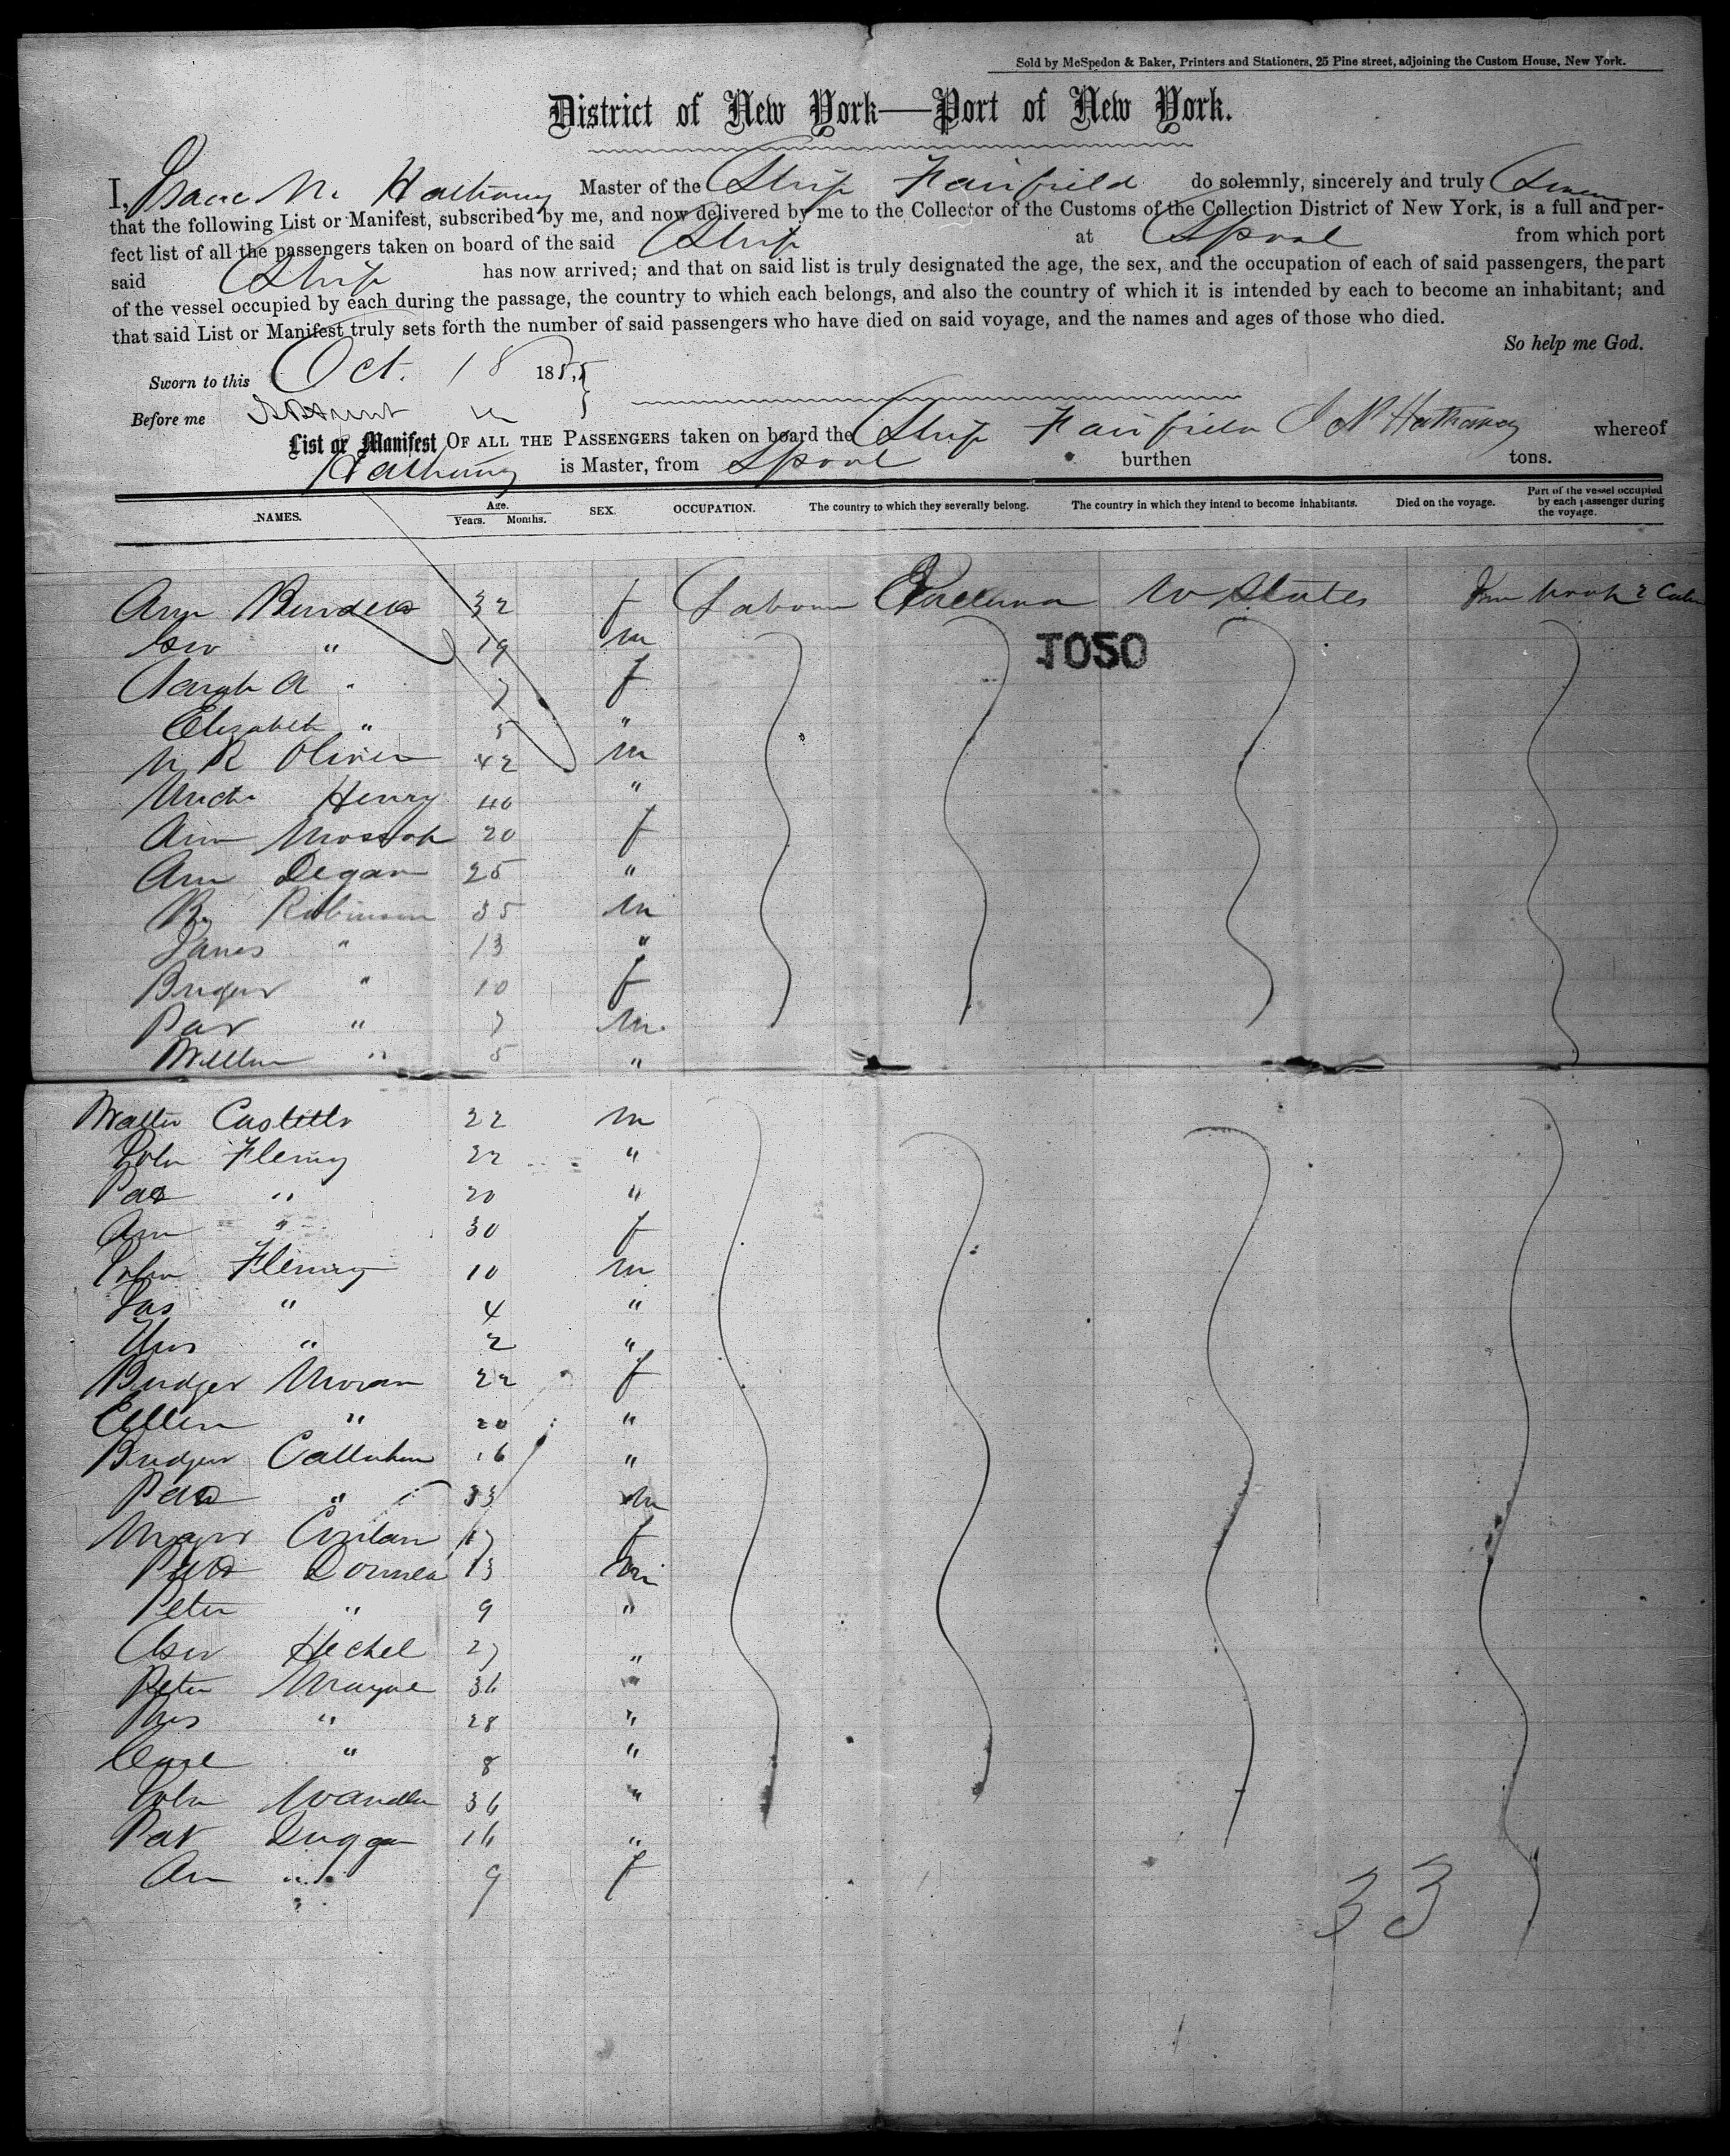 Sold by McSpedon & Baker, Printers and Stationers, 25 Pine street, adjoining the Custom House, New York.
District of New York—Port of New York.
I, Isaac N. Hathaway Master of the Ship Fairfield do solemnly, sincerely and truly Swear
that the following List or Manifest, subscribed by me, and now delivered by me to the Collector of the Customs of the Collection District of New York, is a full and per-
fect list of all the passengers taken on board of the said Ship at Lpool from which port
said Ship has now arrived; and that on said list is truly designated the age, the sex, and the occupation of each of said passengers, the part
of the vessel occupied by each during the passage, the country to which each belongs, and also the country of which it is intended by each to become an inhabitant; and
that said List or Manifest truly sets forth the number of said passengers who have died on said voyage, and the names and ages of those who died.
So help me God.
Sworn to this Oct. 18 1855
Before me
I N Hathaway
List or Manifest OF ALL THE PASSENGERS taken on board the Ship Fairfield whereof
Hathaway is Master, from Lpool burthen tons.
NAMES. Age. Years. Months. SEX. OCCUPATION. The country to which they severally belong. The country in which they intend to become inhabitants. Died on the voyage. Part of the vessel occupied by each passenger during the voyage.
Ann 32 f Labour U States
" 19 m
1050
Sarah A " 7 f
Elizabeth " 5 "
Oliver 42 m
Henry 40 "
Ann 20 f
Ann Degan 25 "
Robinson 35 m
James " 13 "
" 10 f
Pat " 7 m
William " 5 "
Walter Costello 22 m
John Fleming 22 "
Pat " 20 "
Ann " 30 f
John Fleming 10 m
Jas " 4 "
" 2 "
Bridget Moran 22 f
Ellen " 20 "
Bridget Callahan 16 "
Pat " 33 m
Conlan 17 f
Pat 13 m
Peter " 9 "
Hechel 27 "
Peter 36 "
" 28 "
" 8 "
John 36 "
Pat Duggan 16 "
Ann " 9 f
33